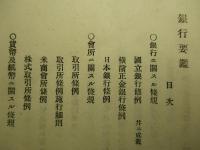 銀行要鑑
目次
◎銀行ニ關スル條規
國立銀行條例 并ニ成規
橫濱正金銀行條例
日本銀行條例
◎會所ニ關スル條規
取引所條例
取引所條例施行細則
米商會所條例
株式取引所條例
◎貨幣及紙幣ニ關スル條規